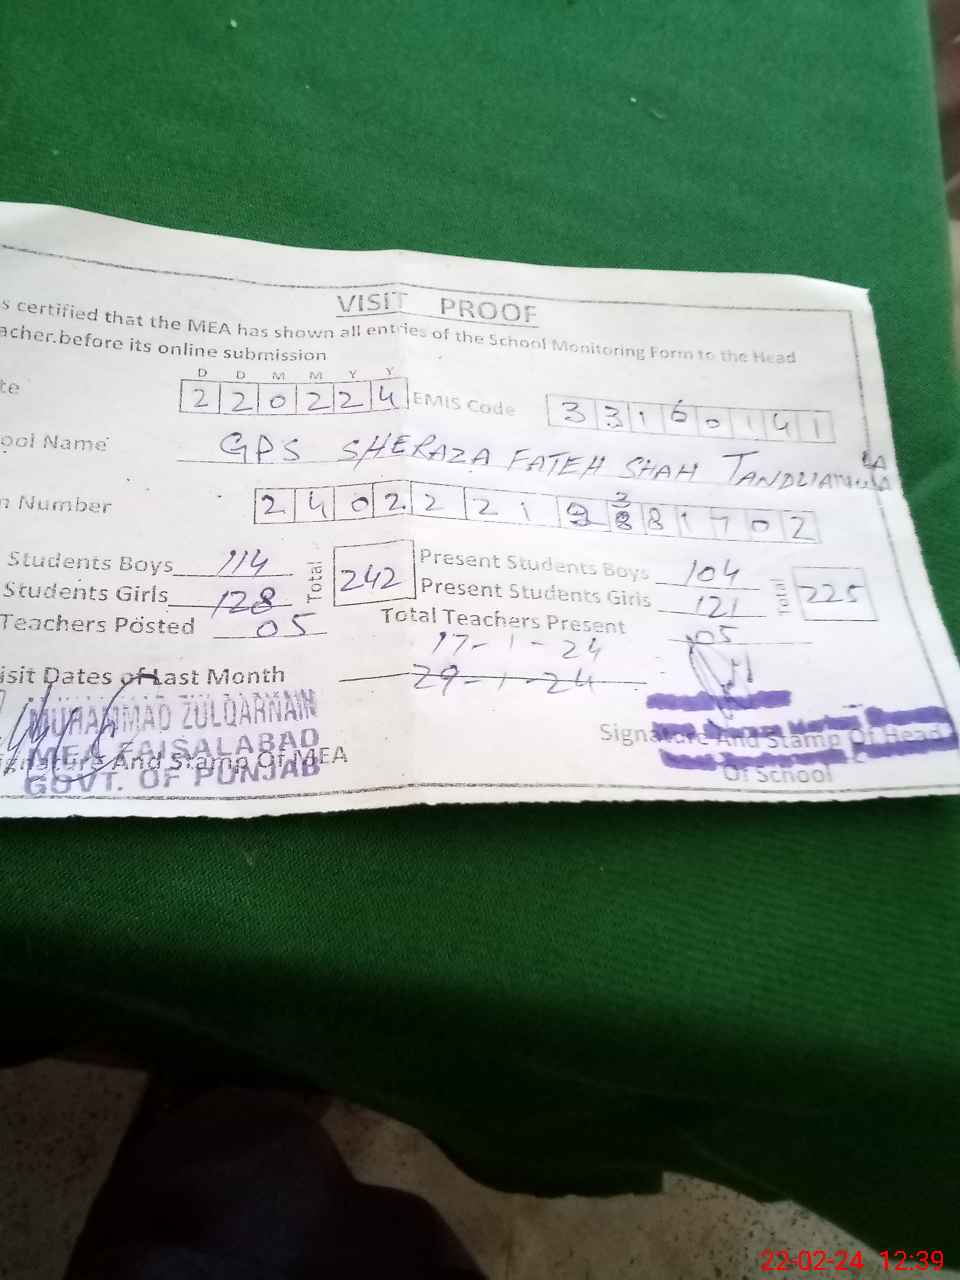 VISIT PROOF
s certified that the MEA has shown all entries of the School Monitoring Form to the Head
acher.before its online submission
D D M M Y Y
te 220224 EMIS Code 33160141
ool Name GPS SHERAZA FATEH SHAH TANDLIANWALA
n Number 2402221 881702
Students Boys 114 Total 242 Present Students Boys 104 Total 225
Students Girls 128 Present Students Girls 121
Teachers Posted 05 Total Teachers Present 05
17-1-24
isit Dates of Last Month 29-1-24
MUHAMMAD ZULQARNAIN
MEA FAISALABAD
GOVT. OF PUNJAB
gnature And Stamp Of MEA
Signature And Stamp Of Head
Of School
22-02-24 12:39